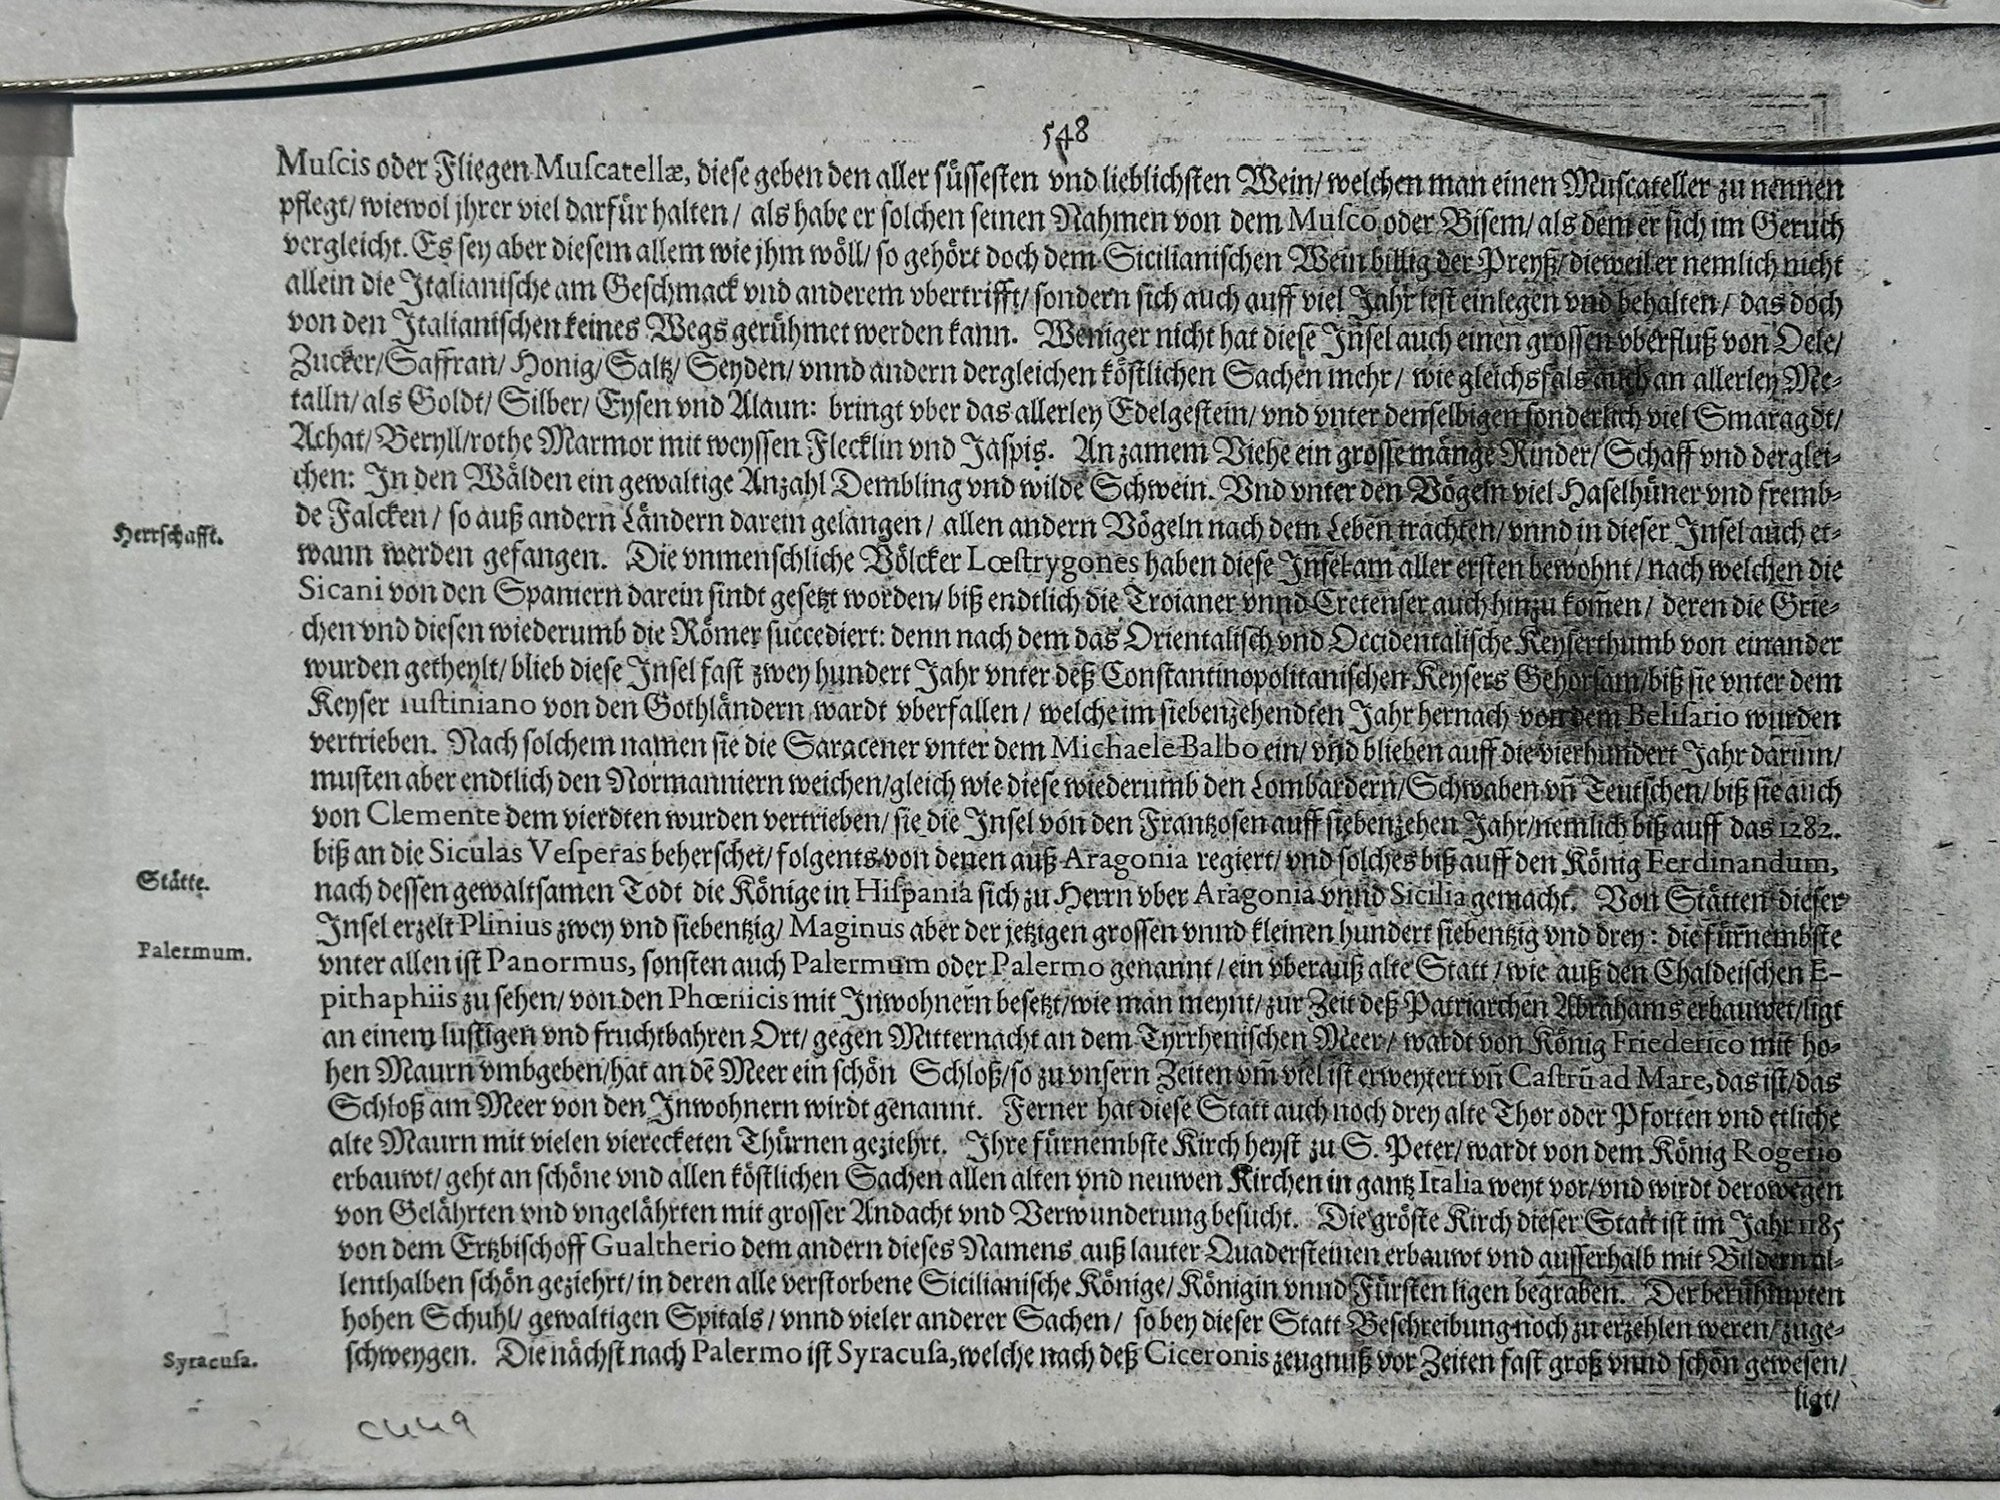 548
Muſcis oder Fliegen Muſcatellæ, dieſe geben den aller ſüſſeſten vnd lieblichſten Wein/ welchen man einen Muſcateller zu nennen
pflegt/ wiewol jhrer viel darfür halten/ als habe er ſolchen ſeinen Nahmen von dem Muſco oder Biſem/ als dem er ſich im Geruch
vergleicht. Es ſey aber dieſem allem wie jhm wöll/ ſo gehört doch dem Sicilianiſchen Wein billig der Preyß/ dieweil er nemlich nicht
allein die Italianiſche am Geſchmack vnd anderem vbertrifft/ ſondern ſich auch auff viel Jahr leſt einlegen vnd behalten/ das doch
von den Italianiſchen keines Wegs gerühmet werden kann. Weniger nicht hat dieſe Inſel auch einen groſſen vberfluß von Oele/
Zucker/ Saffran/ Honig/ Saltz/ Seyden/ vnnd andern dergleichen köſtlichen Sachen mehr/ wie gleichsfals auch an allerley Me-
talln/ als Goldt/ Silber/ Eyſen vnd Alaun: bringt vber das allerley Edelgeſtein/ vnd vnter denſelbigen ſonderlich viel Smaragdt/
Achat/ Beryll/ rothe Marmor mit weyſſen Flecklin vnd Jaſpis. An zamem Viehe ein groſſe mänge Rinder/ Schaff vnd derglei-
chen: In den Wälden ein gewaltige Anzahl Dembling vnd wilde Schwein. Vnd vnter den Vögeln viel Haſelhüner vnd fremb-
de Falcken/ ſo auß andern Ländern darein gelangen/ allen andern Vögeln nach dem Leben trachten/ vnnd in dieſer Inſel auch et-
Herrſchafft.
wann werden gefangen. Die vnmenſchliche Völcker Lœſtrygones haben dieſe Inſel am aller erſten bewohnt/ nach welchen die
Sicani von den Spaniern darein ſindt geſetzt worden/ biß endtlich die Troianer vnnd Cretenſer auch hinzu kom̄en/ deren die Grie-
chen vnd dieſen wiederumb die Römer ſuccediert: denn nach dem das Orientaliſch vnd Occidentaliſche Keyſerthumb von einander
wurden getheylt/ blieb dieſe Inſel faſt zwey hundert Jahr vnter deß Conſtantinopolitaniſchen Keyſers Gehorſam/ biß ſie vnter dem
Keyſer Iuſtiniano von den Gothländern wardt vberfallen/ welche im ſiebenzehendten Jahr hernach von dem Beliſario wurden
vertrieben. Nach ſolchem namen ſie die Saracener vnter dem Michaele Balbo ein/ vnd blieben auff die vierhundert Jahr darinn/
muſten aber endtlich den Normanniern weichen/ gleich wie dieſe wiederumb den Lombardern/ Schwaben vn̄ Teutſchen/ biß ſie auch
von Clemente dem vierdten wurden vertrieben/ ſie die Inſel von den Frantzoſen auff ſiebenzehen Jahr/ nemlich biß auff das 1282.
biß an die Siculas Veſperas beherſchet/ folgents von denen auß Aragonia regiert/ vnd ſolches biß auff den König Ferdinandum,
Stätte.
nach deſſen gewaltſamen Todt die Könige in Hiſpania ſich zu Herrn vber Aragonia vnnd Sicilia gemacht. Von Stätten dieſer
Inſel erzelt Plinius zwey vnd ſiebentzig/ Maginus aber der jetzigen groſſen vnnd kleinen hundert ſiebentzig vnd drey: die fürnembſte
Palermum.
vnter allen iſt Panormus, ſonſten auch Palermum oder Palermo genannt/ ein vberauß alte Statt/ wie auß den Chaldeiſchen E-
pithaphiis zu ſehen/ von den Phœnicis mit Inwohnern beſetzt/ wie man meynt/ zur Zeit deß Patriarchen Abrahams erbauwet/ ligt
an einem luſtigen vnd fruchtbahren Ort/ gegen Mitternacht an dem Tyrrheniſchen Meer/ wardt von König Friederico mit ho-
hen Maurn vmbgeben/ hat an dē Meer ein ſchön Schloß/ ſo zu vnſern Zeiten vm̄ viel iſt erweytert vn̄ Caſtrū ad Mare, das iſt/ das
Schloß am Meer von den Inwohnern wirdt genannt. Ferner hat dieſe Statt auch noch drey alte Thor oder Pforten vnd etliche
alte Maurn mit vielen viereckete​n Thürnen geziehrt. Ihre fürnembſte Kirch heyſt zu S. Peter/ wardt von dem König Rogerio
erbauwt/ geht an ſchöne vnd allen köſtlichen Sachen allen alten vnd neuwen Kirchen in gantz Italia weyt vor/ vnd wirdt derowegen
von Gelährten vnd vngelährten mit groſſer Andacht vnd Verwunderung beſucht. Die gröſte Kirch dieſer Statt iſt im Jahr 1185
von dem Ertzbiſchoff Gualtherio dem andern dieſes Namens auß lauter Quaderſteinen erbauwt vnd auſſerhalb mit Bildern al-
lenthalben ſchön geziehrt/ in deren alle verſtorbene Sicilianiſche Könige/ Königin vnnd Fürſten ligen begraben. Der berühmpten
hohen Schuhl/ gewaltigen Spitals/ vnnd vieler anderer Sachen/ ſo bey dieſer Statt Beſchreibung noch zu erzehlen weren/ zuge-
Syracuſa.
ſchweygen. Die nächſt nach Palermo iſt Syracuſa, welche nach deß Ciceronis zeugnuß vor Zeiten faſt groß vnnd ſchön geweſen/
ligt/